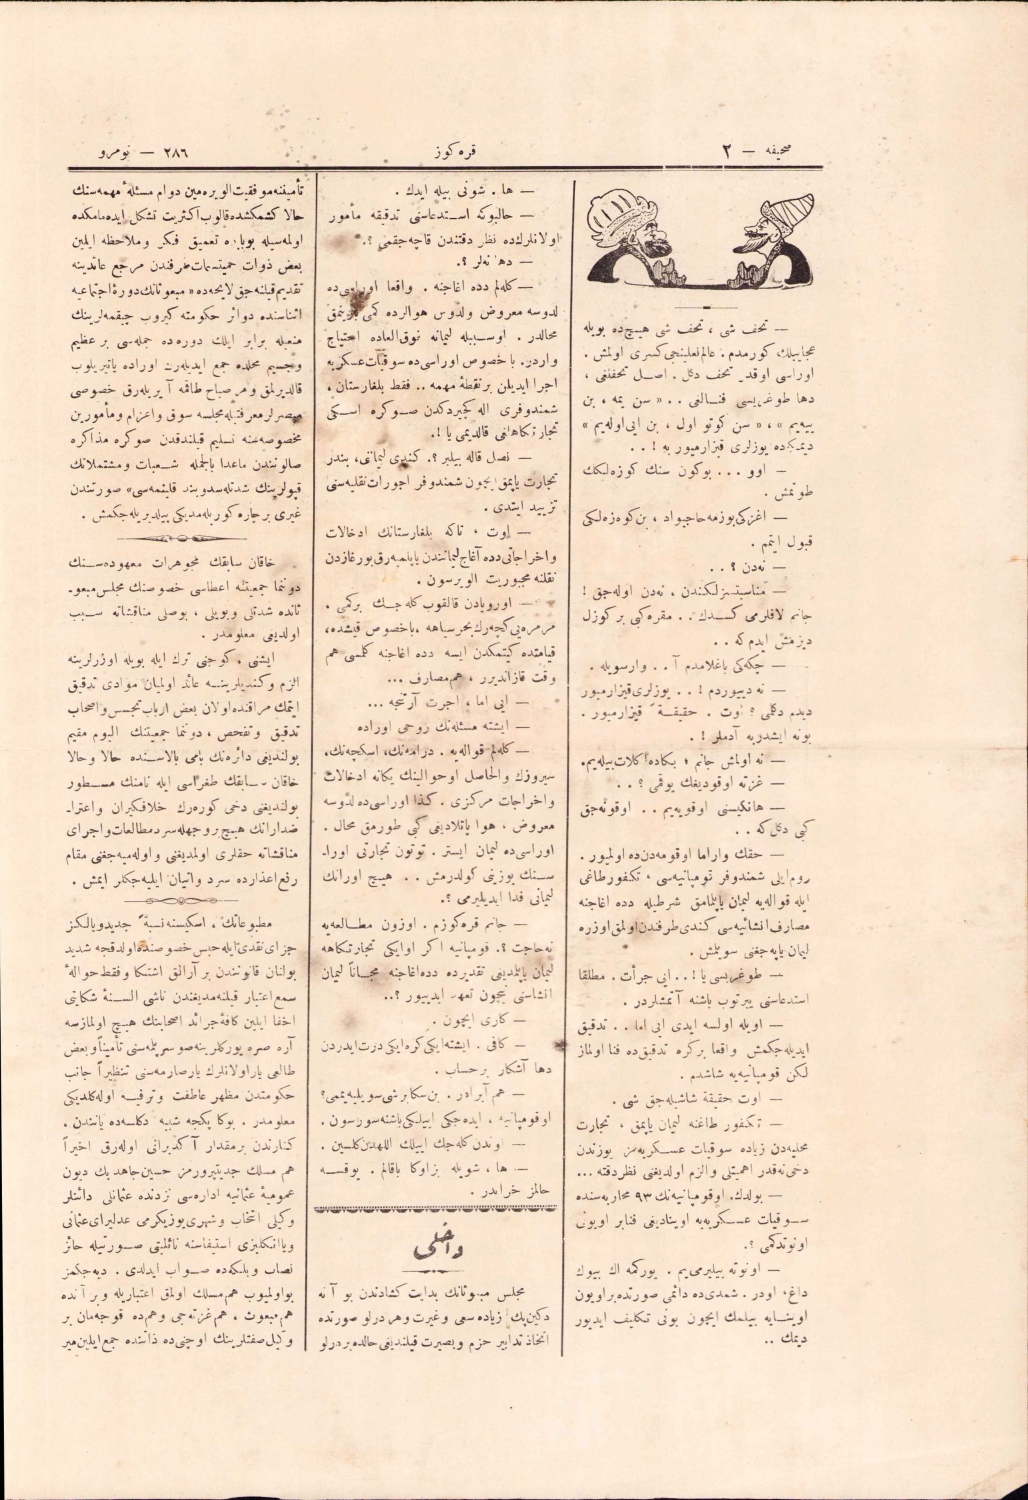 صحیفه — ٢
قره کوز
٢٨٦ — نومرو
— تحف شی ، تحف شی هیچ‌ده بویله
عجایبلك كورمدم . عالم تعلینجی كسری اولمش .
دها طوغریسی فنالغی . . « سن یمه ، بن
ییه‌یم » ، « سن كوتو اول ، بن ایی اوله‌یم »
دیمكده یوزلری قیزارمیور به ! . .
— اوو . . . بوكون سنك كوزه‌لیكك
طوتمش .
— اغزكی بوزمه حاجیواد ، بن كوزه‌لكی
قبول ایتمم .
— نه‌دن ؟ . .
— مناسبتسزلكندن . نه‌دن اوله‌جق !
جانم لاقلرمی كسدك . . مقره كبی بر كوزل
دیزمش ایدم كه . .
— چكه‌كی باغلامدم آ . . وارسویله .
— نه دییوردم ! . . یوزلری قیزارمیور
دیدم دكلی ؟ اوت . حقیقةً قیزارمیور .
بونه ایشدر به آدملر ! .
— نه اولمش جانم ؛ بكاده آكلات بیله‌یم .
— غزته اوقودیغك یوقمی ؟ . .
— هانكیسنی اوقویه‌یم . . اوقونه‌جق
كبی دكل كه . .
— حقك واراما اوقومه‌دن‌ده اولمیور .
روم‌ایلی شمندوفر قومپانیه‌سی ، تكفور طاغی
ایله قواله‌یه لیمان یاپلمق شرطیله دده اغاجنه
مصارف انشائیه‌سی كندی طرفندن اولمق اوزره
لیمان یاپه‌جغنی سویلمش .
— طوغریسی یا ! . . ایی جرأت . مطلقا
استدعاسنی ییرتوب باشنه آتمشلردر .
— اویله اولسه ایدی ایی اما . . تدقیق
ایدیله‌جكمش واقعا بركره تدقیق‌ده فنا اولماز
لكن قومپانیه‌یه شاشدم .
— اوت حقیقة شاشیله‌جق شی .
— تكفور طاغنه لیمان یاپمق ، تجارت
محلیه‌دن زیاده سوقیات عسكریه‌مز یوزندن
دخی نه‌قدر اهمیتلی و الزم اولدیغنی نظر دقته ...
— بولدك. او قومپانیه‌نك ٩٣ محاربه‌سنده
سوقیات عسكریه‌یه اوینادیغی فنابر اویونی
اونوتدكمی ؟.
— اونوته بیلیرمی‌یم . یوركمه اك بیوك
داغ ، اودر . شمدی‌ده دائمی صورتده بر اویون
اوینایه بیلمك ایچون بونی تكلیف ایدیور
دیمك ..
— ها . شونی بیله ایدك .
— حالبوكه استدعاسنی تدقیقه مأمور
اولانلرك‌ده نظر دقتندن قاچه‌جقمی ؟.
— دها نه‌لر ؟.
— كله‌لم دده اغاجنه . واقعا اوراسی‌ده
لدوسه معروض ولدوس هوالرده كمی
محالدر . اوسببله لیمانه فوق‌العاده احتیاج
واردر. باخصوص اوراسی‌ده سوقیات عسكریه
اجرا ایدیلن بر نقطهٔ مهمه .. فقط بلغارستان ،
شمندوفری اله كچیردكدن صوكره اسكی
تجارتكاهلغی قالدیمی یا !.
— نصل قاله بیلیر ؟. كندی لیمانی، بندر
تجارت یاپمق ایچون شمندوفر اجورات نقلیه‌سنی
تزیید ایتدی .
— اوت ، تاكه بلغارستانك ادخالات
واخراجاتی دده آغاج لیمانندن یاپلمیه‌رق بورغازدن
نقلنه مجبوریت الویرسون .
— اوروپادن قالقوب كله‌جك بركمی .
مرمره‌یی كچه‌رك بحر سیاهه ، باخصوص قیشده،
قیامتده كیتمكدن ایسه دده اغاجنه كلمسی هم
وقت قازاندیرر ، هم مصارف ...
— ایی اما ، اجرت آرتنجه ...
— ایشته مسئله‌نك روحی اوراده
— كله‌لم قواله‌یه . درامه‌نك ، اسكچه‌نك،
سیروزك والحاصل او حوالینك یكانه ادخالات
واخراجات مركزی . كذا اوراسی‌ده لدوسه
معروض ، هوا پاتلادیغی كبی طورمق محال .
اوراسی‌ده لیمان ایستر . توتون تجارتی اورا-
سنك یوزینی كولدرمش . . هیچ اورانك
لیمانی فدا ایدیلیرمی ؟.
— جانم قره‌كوزم . اوزون مطالعه‌یه
نه حاجت ؟. قومپانیه اكر اوایكی تجارتكاهه
لیمان یاپلمدیغی تقدیرده دده اغاجنه مجاناً لیمان
انشاسنی نیچون تعهد ایدییور ؟..
— كاری ایچون .
— كافی . ایشته ایكی كره ایكی درت ایدردن
دها آشكار بر حساب .
— هم آبرادر . بن سكا برشی سویلیه‌یممی؟
او قومپانیه ، ایده‌جكی اییلكی باشنه سورسون .
— اوندن كله‌جك اییلك اللهدن كلسین .
— ها ، شویله بزاوكا باقالم . یوقسه
حالمز خرابدر .
داخلی
مجلس مبعوثانك بدایت كشادندن بو آنه
دكین پك زیاده سعی وغیرت وهر درلو صورتده
اتخاذ تدابیر حزم وبصیرت قیلندیغی حالده بردرلو
تأمیننه موفقیت الویره‌مین دوام مسئلهٔ مهمه‌سنك
حالا كشمكشده قالوب اكثریت تشكل ایده‌مامكده
اولمه‌سیله بوبابده تعمیق فكر وملاحظه ایلین
بعض ذوات حمیتسمات طرفندن مرجع عائدینه
تقدیم قیلنه‌جق لایحه‌ده « مبعوثانك دورهٔ اجتماعیه
اثناسنده دوائر حكومته كیروب چیقمه‌لرینك
منعیله برابر ایلك دوره‌ده جمله‌سی بر عظیم
وجسیم محلده جمع ایدیله‌رك اوراده یاتیریلوب
قالدیرلمق وهر صباح طاقمه آیریله‌رق خصوصی
مبصرلر معرفتیله مجلسه سوق واعزام ومأمورین
مخصوصه‌سنه تسلیم قیلندقدن صوكره مذاكره
صالونندن ماعدا بالجمله شعبات ومشتملاتك
قپولرینك شدتله سد و بند قلینمه‌سی» صورتندن
غیری بر چاره كوریله‌مدیكی بیلدیریله‌جكمش .
خاقان سابقك مجوهرات معهوده‌سنك
دونما جمعیتنه اعطاسی خصوصنك مجلس مبعو-
ثانده شدتلی وبویلی ، بوصلی مناقشاته سبب
اولدیغی معلومدر .
ایشنی ، كوجنی ترك ایله بویله اوزرلرینه
الزم وكندیلرینه عائد اولمیان موادی تدقیق
ایتمك مراقنده اولان بعض ارباب تجسس واصحاب
تدقیق وتفحص ، دونما جمعیتنك الیوم مقیم
بولندیغی دائره‌نك بامی بالاسنده حالا وحالا
خاقان سابقك طغراسی ایله نامنك مسطور
بولندیغنی دخی كوره‌رك خلافكیران واعترا-
ضدارانك هیچ بر وجهله سرد مطالعات واجرای
مناقشاته حقلری اولمدیغنی واوله‌میه‌جغنی مقام
رفع اعذارده سرد واتیان ایلیه‌جكلر ایمش .
مطبوعاتك ، اسكیسنه نسبةً جدید ویالكز
جزای نقدی ایله حبس خصوصنده اولدقجه شدید
بولنان قانونندن بر آرالق اشتكا وفقط حوالهٔ
سمع اعتبار قیلنه‌مدیغندن ناشی السنهٔ شكایتی
اخفا ایلین كافهٔ جرائد اصحابنك هیچ اولمازسه
آره صره یوركلرینه صو سرپلمه‌سنی تأمیناً وبعض
طالعی یار اولانلرك یارصارمه‌سنی تنظیراً جانب
حكومتدن مظهر عاطفت وترفیه اوله‌كلدیكی
معلومدر . بوكا یكجه شبیه دكلسه‌ده یانندن ،
كنارندن برمقدار آكدیرانی اوله‌رق اخیراً
هم مسلك جدیتپرورمز حسین جاهد بك دیون
عمومیهٔ عثمانیه اداره‌سی نزدنده عثمانلی داینلر
وكیلی انتخاب وشهری یوزیكرمی عدلیرای عثمانی
ویا انكلیزی استیفاسنه نائلیتی صورتیله حائز
نصاب وبلكه‌ده صواب ایدلدی . دیه‌جكمز
بواولمیوب هم مسلك اولمق اعتباریله وبر آنده
هم مبعوث ، هم غزته‌جی وهم‌ده قوجه‌مان بر
وكیل صفتلرینك اوچنی‌ده ذاتنده جمع ایلین میر